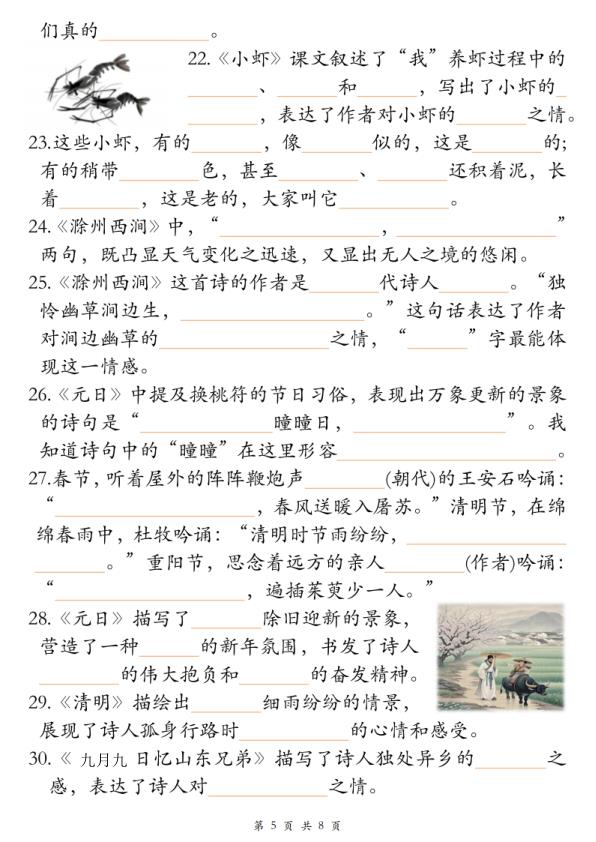 们真的__________。
22.《小虾》课文叙述了“我”养虾过程中的
________、________和________，写出了小虾的_
________，表达了作者对小虾的________之情。
23.这些小虾，有的________，像________似的，这是________的;
有的稍带_________色，甚至_________、________还积着泥，长
着_________，这是老的，大家叫它____________。
24.《滁州西涧》中，“__________________，__________________”
两句，既凸显天气变化之迅速，又显出无人之境的悠闲。
25.《滁州西涧》这首诗的作者是________代诗人________。“独
怜幽草涧边生，____________________。”这句话表达了作者
对涧边幽草的___________________之情，“______”字最能体
现这一情感。
26.《元日》中提及换桃符的节日习俗，表现出万象更新的景象
的诗句是“_______________曈曈日，_________________”。我
知道诗句中的“曈曈”在这里形容_________________________。
27.春节，听着屋外的阵阵鞭炮声_________(朝代)的王安石吟诵：
“_______________________，春风送暖入屠苏。”清明节，在绵
绵春雨中，杜牧吟诵：“清明时节雨纷纷，__________________
________。”重阳节，思念着远方的亲人_________(作者)吟诵：
“______________________，遍插茱萸少一人。”
28.《元日》描写了________除旧迎新的景象，
营造了一种_______的新年氛围，书发了诗人
_________的伟大抱负和________的奋发精神。
29.《清明》描绘出________细雨纷纷的情景，
展现了诗人孤身行路时____________的心情和感受。
30.《 九月九 日忆山东兄弟》描写了诗人独处异乡的________之
感，表达了诗人对_____________之情。
第 5 页 共 8 页